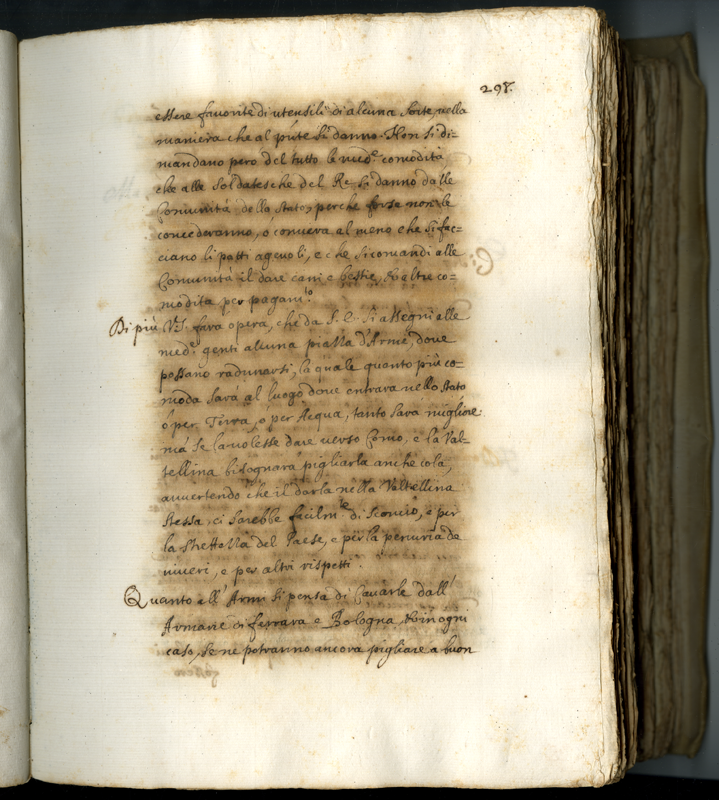 297.
essere favorite di utensili di alcuna sorte, nella
maniera che al pñte si danno. Non si di=
mandano però del tutto le med.e comodità
che alle Soldatesche del Re si danno dalle
Comunità dello Stato, perche forse non le
concederanno, o conuerà al meno che si fac=
ciano li patti ageuoli, e che si comandi alle
Comunità il dare carri e bestie, & altre co=
modita per pagam.to
Di più V.S. farà opera, che da S. E. si assegni alle
med.e genti alcuna piazza d'Arme, doue
possano radunarsi, la quale quanto più co=
moda sarà al luogo doue entrara nello Stato
ò per Terra, ò per Acqua, tanto sarà migliore:
mà se la uolesse dare uerso Como, e la Val=
tellina bisognarà pigliarla anche colà,
auuertendo che il darla nella Valtellina
stessa ci sarebbe facilm.te di sconcio, e per
la strettezza del Paese, e per la penuria de
uiueri, e per altri rispetti.
Quanto all' Armi si pensa di Cauarle dall'
Armarie di Ferrara e Bologna, & in ogni
caso, se ne potranno ancora pigliare a buon